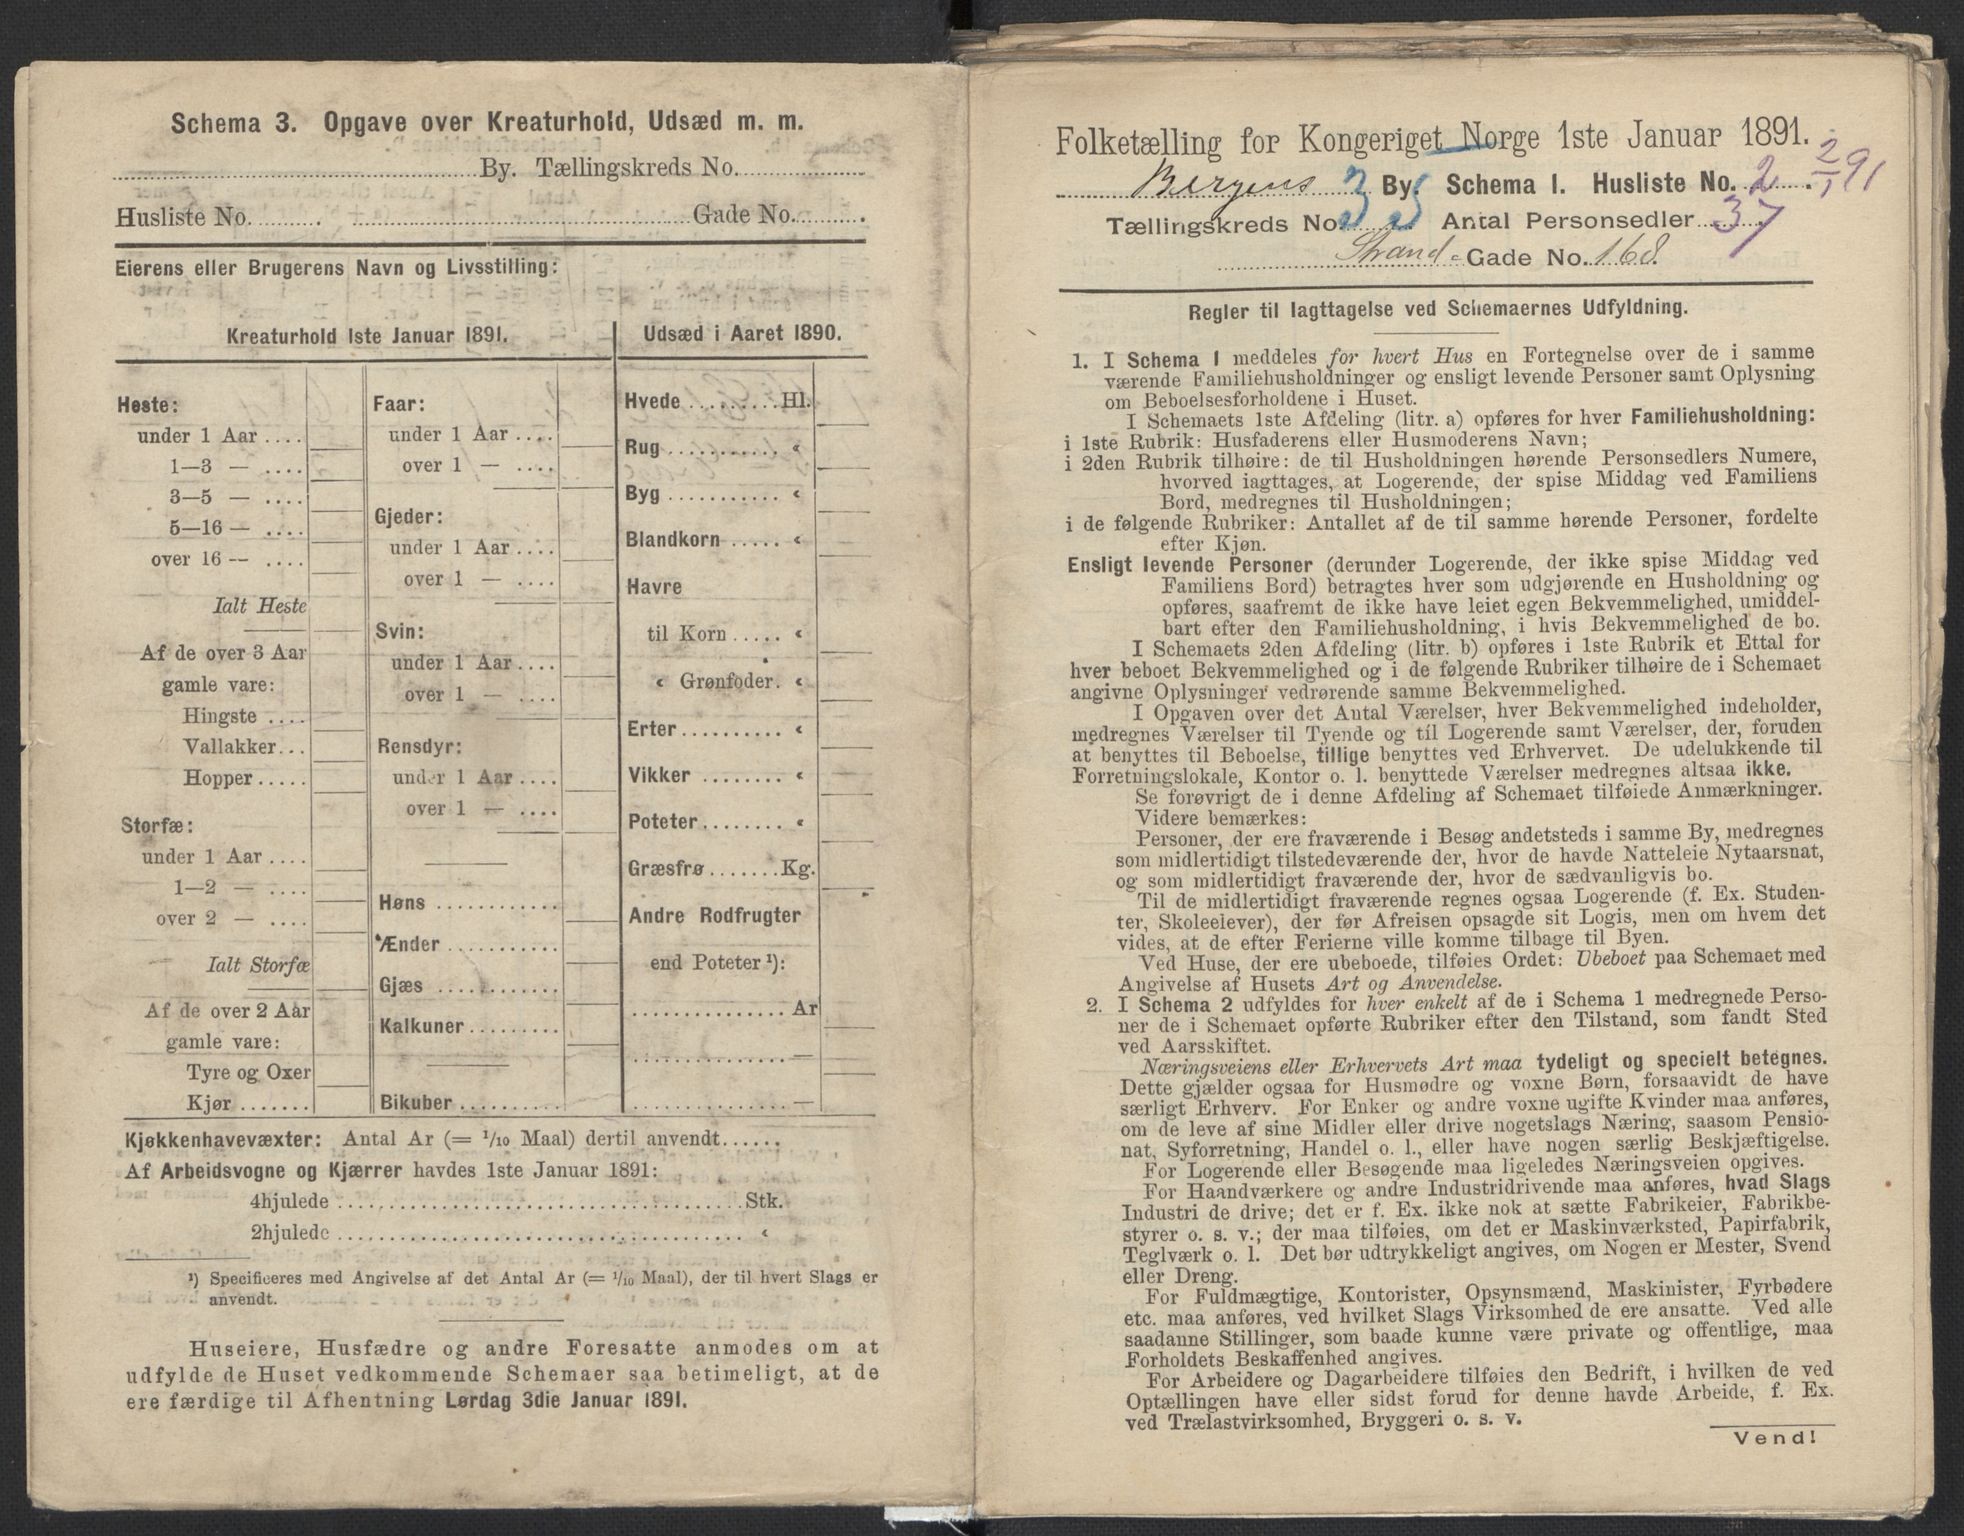 Schema 3. Opgave over Kreaturhold, Udsæd m. m.
By. Tællingskreds No.
Husliste No. Gade No.
Eierens eller Brugerens Navn og Livsstilling:
Kreaturhold 1ste Januar 1891.
Heste:
under 1 Aar ....
1—3 — ....
3—5 — ....
5—16 — ....
over 16 — ....
Ialt Heste
Af de over 3 Aar
gamle vare:
Hingste ....
Vallakker...
Hopper .....
Storfæ:
under 1 Aar ....
1—2 — ....
over 2 — ....
Ialt Storfæ
Af de over 2 Aar
gamle vare:
Tyre og Oxer
Kjør .......
Faar:
under 1 Aar ....
over 1 — ....
Gjeder:
under 1 Aar ....
over 1 — ....
Svin:
under 1 Aar ....
over 1 — ....
Rensdyr:
under 1 Aar ....
over 1 — ....
Høns ............
Ænder ...........
Gjæs ............
Kalkuner .........
Bikuber ..........
Udsæd i Aaret 1890.
Hvede ......... Hl.
Rug ........... «
Byg ........... «
Blandkorn ..... «
Havre
til Korn ..... «
« Grønfoder. «
Erter .......... «
Vikker ........ «
Poteter ........ «
Græsfrø ....... Kg.
Andre Rodfrugter
end Poteter ¹):
............... Ar
............... —
............... —
Kjøkkenhavevæxter: Antal Ar (= 1/10 Maal) dertil anvendt......
Af Arbeidsvogne og Kjærrer havdes 1ste Januar 1891:
4hjulede ........................................ Stk.
2hjulede ........................................ «
¹) Specificeres med Angivelse af det Antal Ar (= 1/10 Maal), der til hvert Slags er
anvendt.
Huseiere, Husfædre og andre Foresatte anmodes om at
udfylde de Huset vedkommende Schemaer saa betimeligt, at de
ere færdige til Afhentning Lørdag 3die Januar 1891.
Folketælling for Kongeriget Norge 1ste Januar 1891. 2/1 91
Bergens By. Schema 1. Husliste No. 2.
Tællingskreds No. 35 Antal Personsedler 37
Strand- Gade No. 168.
Regler til Iagttagelse ved Schemaernes Udfyldning.
1. I Schema 1 meddeles for hvert Hus en Fortegnelse over de i samme
værende Familiehusholdninger og ensligt levende Personer samt Oplysning
om Beboelsesforholdene i Huset.
I Schemaets 1ste Afdeling (litr. a) opføres for hver Familiehusholdning:
i 1ste Rubrik: Husfaderens eller Husmoderens Navn;
i 2den Rubrik tilhøire: de til Husholdningen hørende Personsedlers Numere,
hvorved iagttages, at Logerende, der spise Middag ved Familiens
Bord, medregnes til Husholdningen;
i de følgende Rubriker: Antallet af de til samme hørende Personer, fordelte
efter Kjøn.
Ensligt levende Personer (derunder Logerende, der ikke spise Middag ved
Familiens Bord) betragtes hver som udgjørende en Husholdning og
opføres, saafremt de ikke have leiet egen Bekvemmelighed, umiddel-
bart efter den Familiehusholdning, i hvis Bekvemmelighed de bo.
I Schemaets 2den Afdeling (litr. b) opføres i 1ste Rubrik et Ettal for
hver beboet Bekvemmelighed og i de følgende Rubriker tilhøire de i Schemaet
angivne Oplysninger vedrørende samme Bekvemmelighed.
I Opgaven over det Antal Værelser, hver Bekvemmelighed indeholder,
medregnes Værelser til Tyende og til Logerende samt Værelser, der, foruden
at benyttes til Beboelse, tillige benyttes ved Erhvervet. De udelukkende til
Forretningslokale, Kontor o. l. benyttede Værelser medregnes altsaa ikke.
Se forøvrigt de i denne Afdeling af Schemaet tilføiede Anmærkninger.
Videre bemærkes:
Personer, der ere fraværende i Besøg andetsteds i samme By, medregnes
som midlertidigt tilstedeværende der, hvor de havde Natteleie Nytaarsnat,
og som midlertidigt fraværende der, hvor de sædvanligvis bo.
Til de midlertidigt fraværende regnes ogsaa Logerende (f. Ex. Studen-
ter, Skoleelever), der før Afreisen opsagde sit Logis, men om hvem det
vides, at de efter Ferierne ville komme tilbage til Byen.
Ved Huse, der ere ubeboede, tilføies Ordet: Ubeboet paa Schemaet med
Angivelse af Husets Art og Anvendelse.
2. I Schema 2 udfyldes for hver enkelt af de i Schema 1 medregnede Perso-
ner de i Schemaet opførte Rubriker efter den Tilstand, som fandt Sted
ved Aarsskiftet.
Næringsveiens eller Erhvervets Art maa tydeligt og specielt betegnes.
Dette gjælder ogsaa for Husmødre og voxne Børn, forsaavidt de have
særligt Erhverv. For Enker og andre voxne ugifte Kvinder maa anføres,
om de leve af sine Midler eller drive nogetslags Næring, saasom Pensio-
nat, Syforretning, Handel o. l., eller have nogen særlig Beskjæftigelse.
For Logerende eller Besøgende maa ligeledes Næringsveien opgives.
For Haandværkere og andre Industridrivende maa anføres, hvad Slags
Industri de drive; det er f. Ex. ikke nok at sætte Fabrikeier, Fabrikbe-
styrer o. s. v.; der maa tilføies, om det er Maskinværksted, Papirfabrik,
Teglværk o. l. Det bør udtrykkeligt angives, om Nogen er Mester, Svend
eller Dreng.
For Fuldmægtige, Kontorister, Opsynsmænd, Maskinister, Fyrbødere
etc. maa anføres, ved hvilket Slags Virksomhed de ere ansatte. Ved alle
saadanne Stillinger, som baade kunne være private og offentlige, maa
Forholdets Beskaffenhed angives.
For Arbeidere og Dagarbeidere tilføies den Bedrift, i hvilken de ved
Optællingen have eller sidst forud for denne havde Arbeide, f. Ex.
ved Trælastvirksomhed, Bryggeri o. s. v.
Vend!